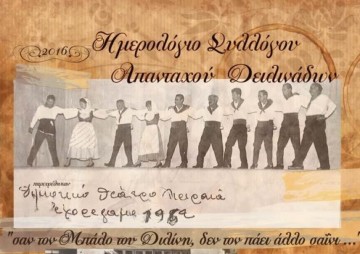 2016
Ημερολόγιο Συλλόγου
Απανταχού Δειλινάδων
Δημοτικό Θέατρο Πειραιά
1982
"σαν τον Μπάλο του Διλίνη, δεν τον πάει άλλο σαΐνι ..."